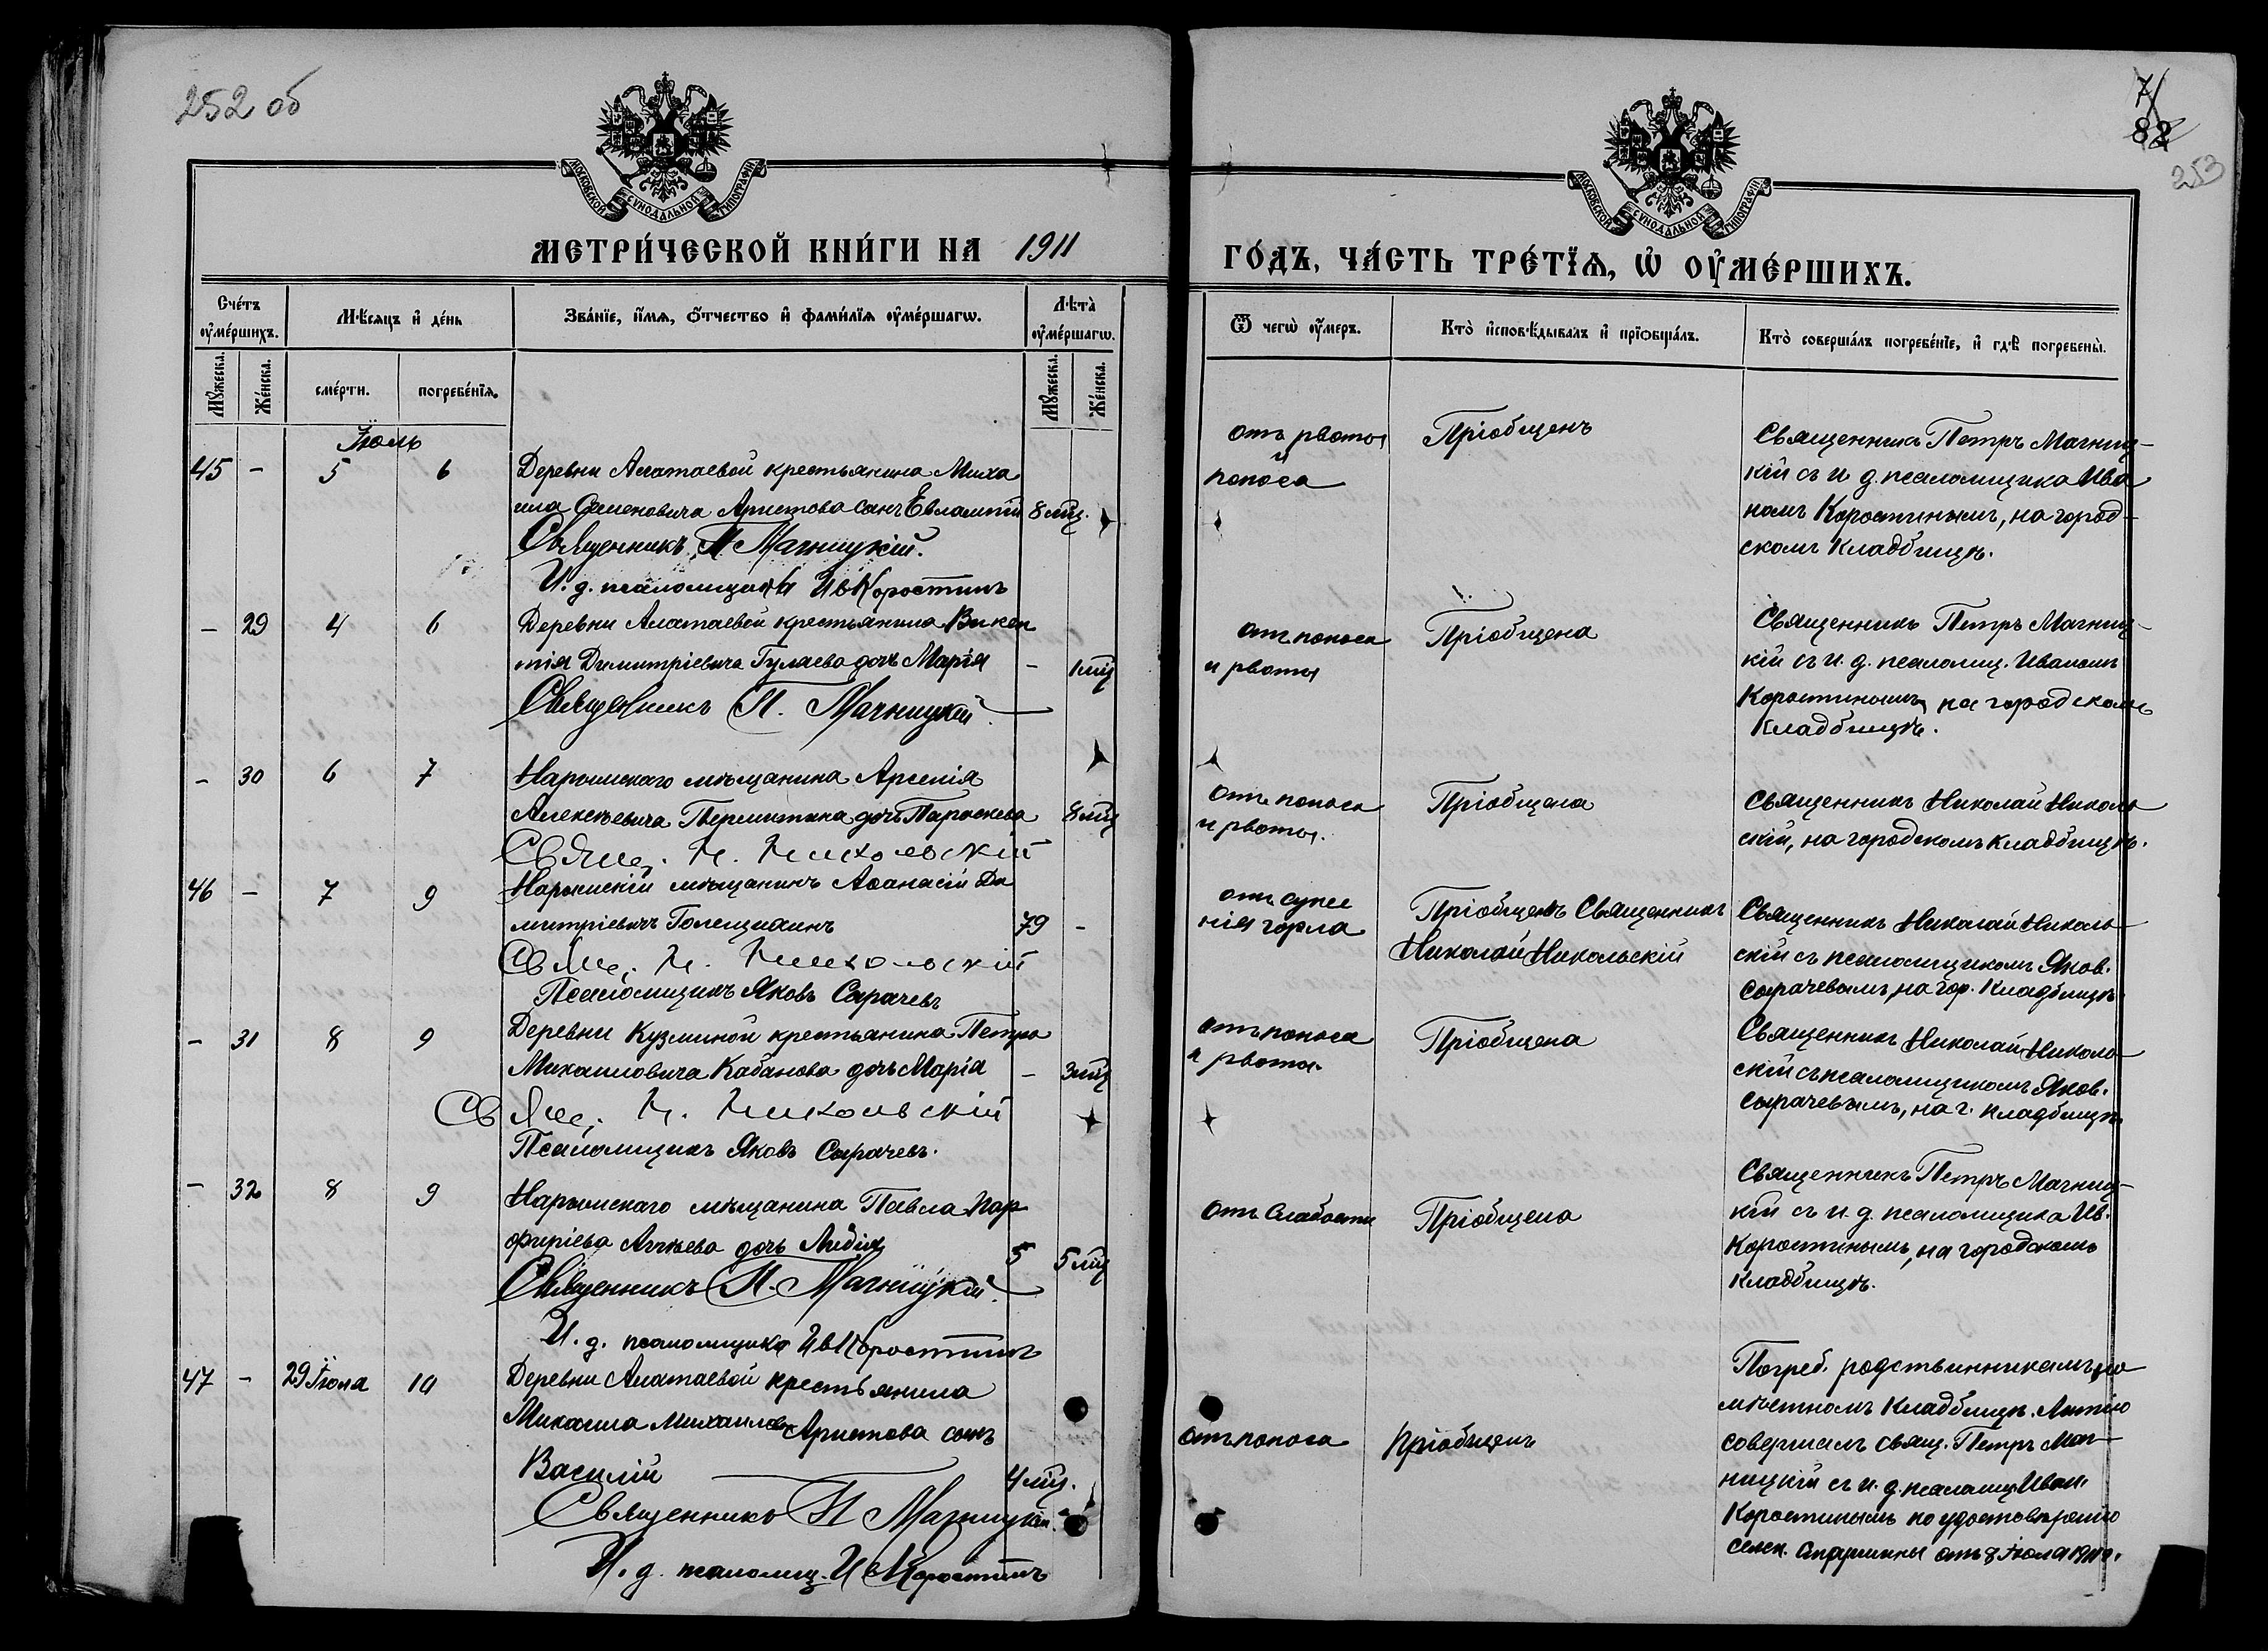 252 об
7
82
253
МОСКОВСКОЙ СУНОДАЛЬНОЙ ТИПОГРАФІИ
МОСКОВСКОЙ СУНОДАЛЬНОЙ ТИПОГРАФІИ
МЕТРИ́ЧЕСКОЙ КНИ́ГИ НА 1911
ГО́ДЪ, ЧА́СТЬ ТРЕ́ТЇѦ, Ѡ҆ ОУ҆МЕ́РШИХЪ.
Сче́тъ оу҆ме́ршихъ.
Мѣ́сѧцъ и҆ де́нь
Зва́нїе, и҆́мѧ, ѻ҆́тчество и҆ фами́лїѧ оу҆ме́ршагѡ.
Лѣта̀ оу҆ме́ршагѡ.
Ѿ чегѡ̀ оу҆́меръ.
Кто̀ и҆сповѣ́дывалъ и҆ прїѡбща́лъ.
Кто̀ соверша́лъ погребе́нїе, и҆ гдѣ̀ погребены̀.
Мꙋ́жеска.
Же́нска.
сме́рти.
погребе́нїѧ.
Мꙋ́жеска.
Же́нска.
Іюль
45 - 5 6
Деревни Алатаевой крестьянина Миха
ила Семеновича Аристова сынъ Евлампій 8 мц.
Священникъ П Магницкій.
И. д. псаломщика Ив Коростинъ
отъ рвоты
и
поноса
Пріобщенъ
Священникъ Петръ Магниц-
кій съ и д. псаломщика Ива
номъ Коростинымъ, на город-
скомъ кладбищѣ.
- 29 4 6
Деревни Алатаевой крестьянина Викен
тія Димитріевича Гуляева дочь Марія - 1 мц
Священникъ П. Магницкій.
отъ поноса
и рвоты
Пріобщена
Священникъ Петръ Магниц-
кій съ и. д. псаломщ. Иваномъ
Коростинымъ, на городскомъ
кладбищѣ.
- 30 6 7
Нарымскаго мѣщанина Арсенія
Алексѣевича Перемитина дочь Параскева 8 мц
Свящ. Н. Никольскій
отъ поноса
и рвоты.
Пріобщена
Священникъ Николай Николь
скій, на городскомъ кладбищѣ.
46 - 7 9
Нарымскій мѣщанинъ Аѳанасій Ди
митріевичъ Голещихинъ 79 -
Свящ. Н. Никольскій
Псаломщикъ Яковъ Сырачевъ
отъ суже
нія горла
Пріобщенъ Священникъ
Николай Никольскій
Священникъ Николай Николь-
скій съ псаломщикомъ Яков.
Сырачевымъ, на гор. кладбищѣ.
- 31 8 9
Деревни Кузминой крестьянина Петра
Михаиловича Кабанова дочь Марія - 3 мц
Свящ. Н. Никольскій
Псаломщикъ Яковъ Сырачевъ.
отъ поноса
и рвоты.
Пріобщена
Священникъ Николай Николь-
скій съ псаломщикомъ Яков.
Сырачевымъ, на г. кладбищѣ.
- 32 8 9
Нарымскаго мѣщанина Павла Пор
фиріева дочь Лидія 5 5 мц
Священникъ П. Магницкій.
И. д. псаломщика Ив Коростинъ
отъ слабости
Пріобщена
Священникъ Петръ Магниц-
кій съ и. д. псаломщика Ив.
Коростинымъ, на городскомъ
кладбищѣ.
47 - 29 Іюня 10
Деревни Алатаевой крестьянина
Михаила Михаилов. Аристова сынъ
Василій 4 мц.
Священникъ П Магницкій.
И. д. псаломщ. Ив Коростинъ
отъ поноса
Пріобщенъ
Погреб. родственниками на
мѣстномъ кладбищѣ. Литію
совершалъ свящ. Петръ Маг-
ницкій съ и. д. псаломщ. Иван.
Коростинымъ по удостовѣренію
сельск. старшины отъ 8 Іюля 1911 г.